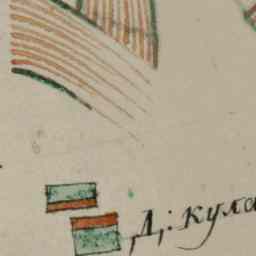 Д: кула